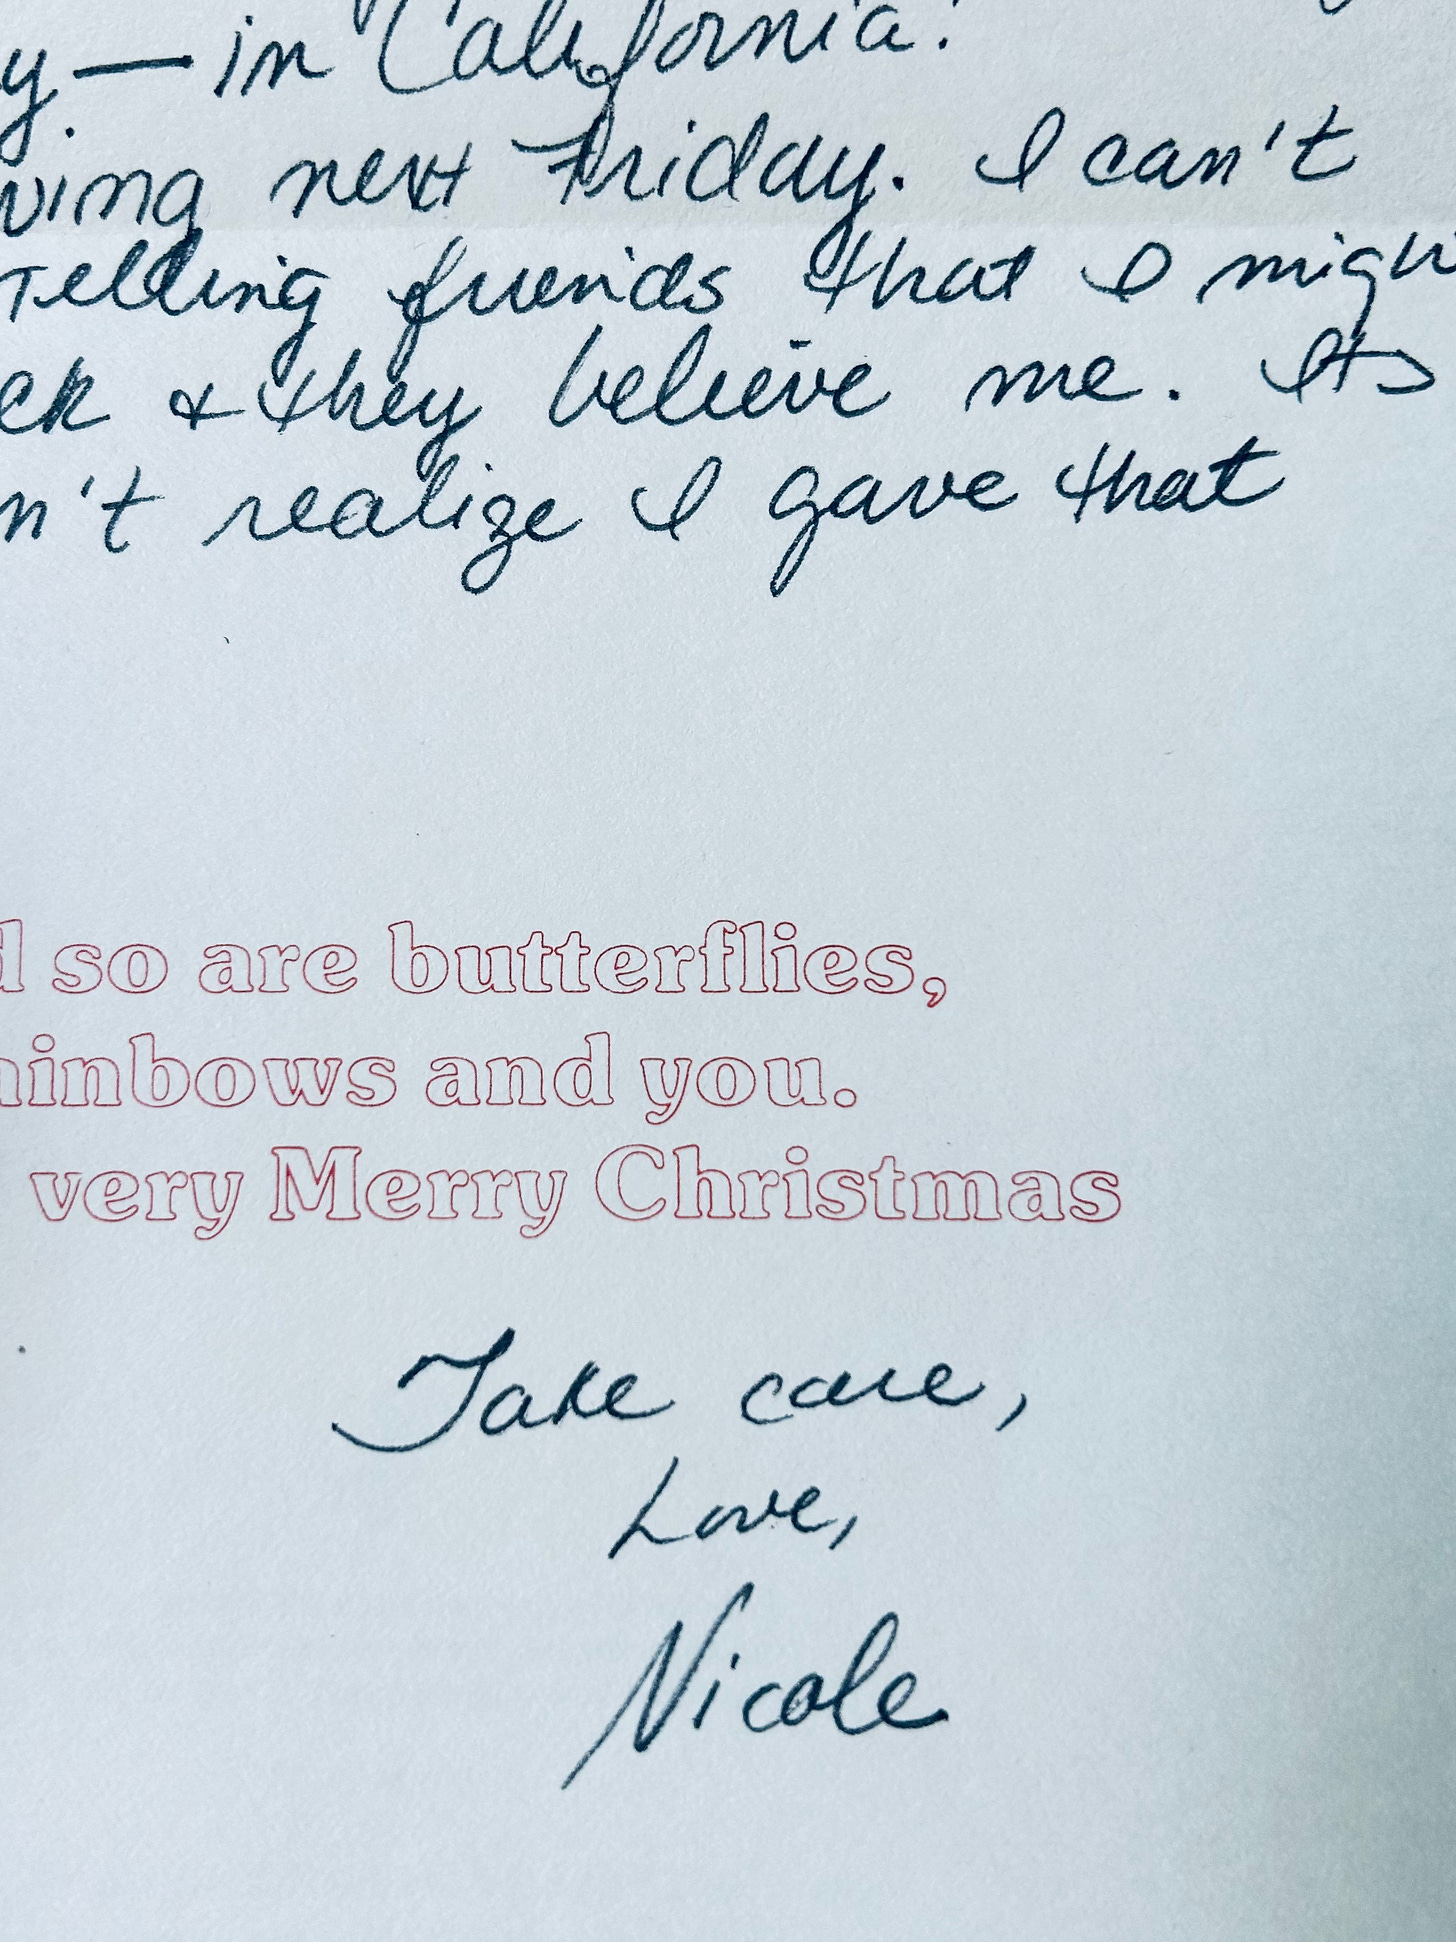 y — in California!
ving next Friday. I can't
Telling friends that I migh
ck & they believe me. Its
n't realize I gave that
d so are butterflies,
ainbows and you.
very Merry Christmas
Take care,
Love,
Nicole